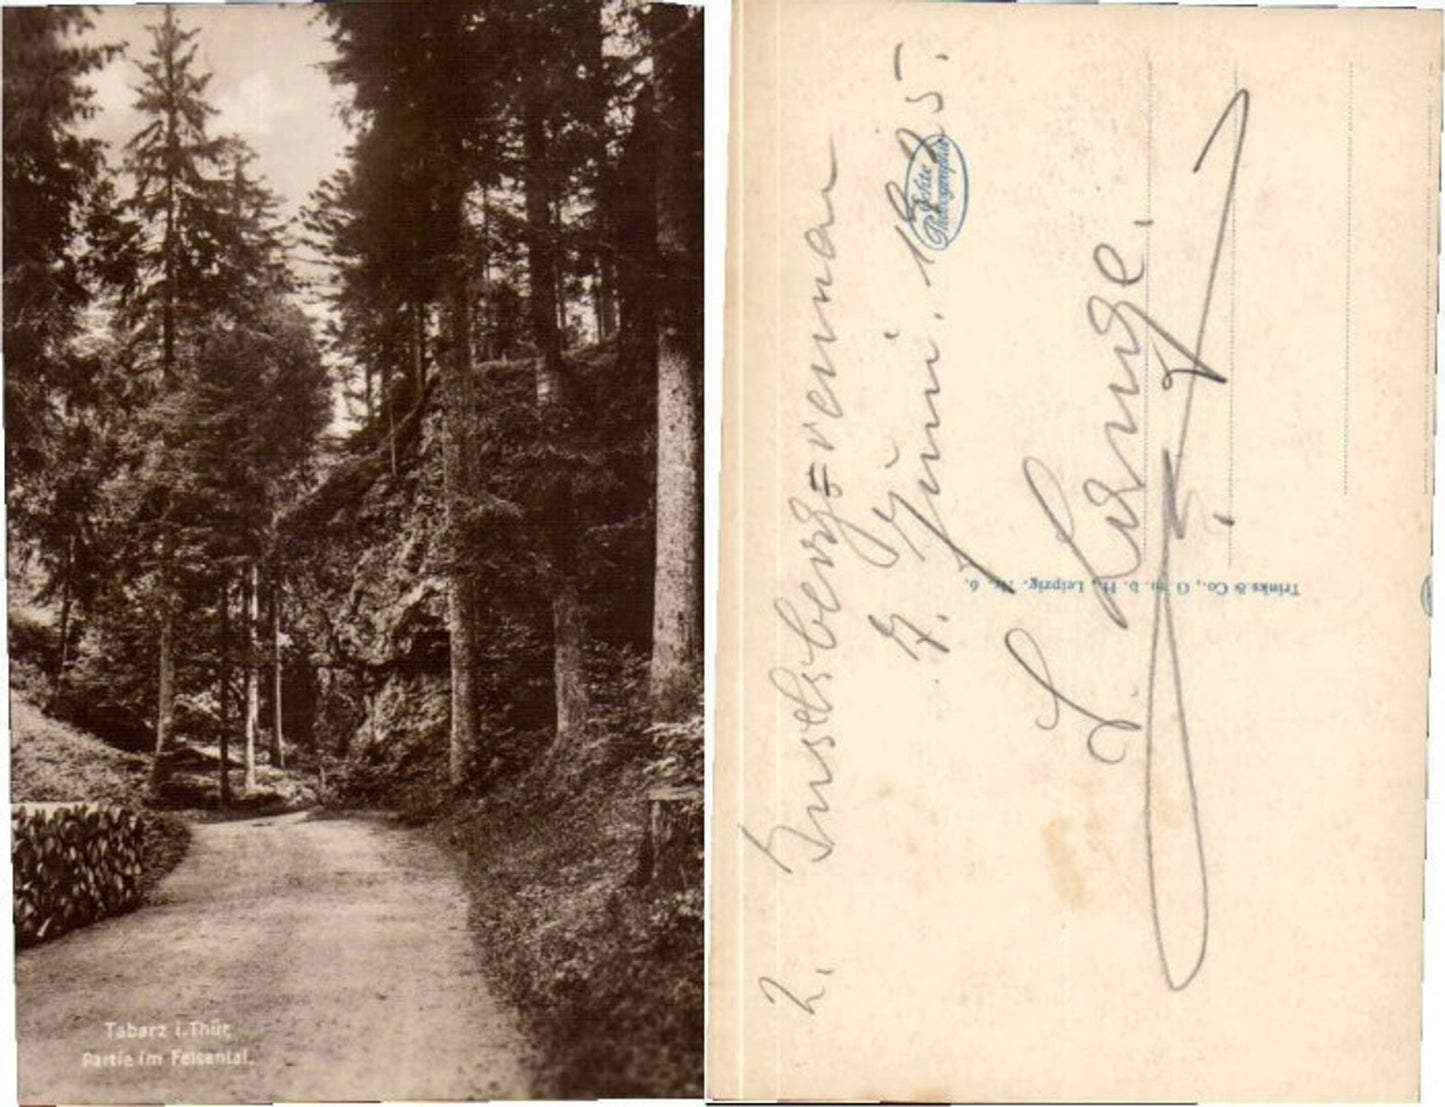 Tabarz i. Thür.
Partie im Felsental.
2. Inselsbergrennen
7. Juni. 1925.
Echte
Photographie
Trinks & Co., G. m. b. H., Leipzig. Nr. 6.